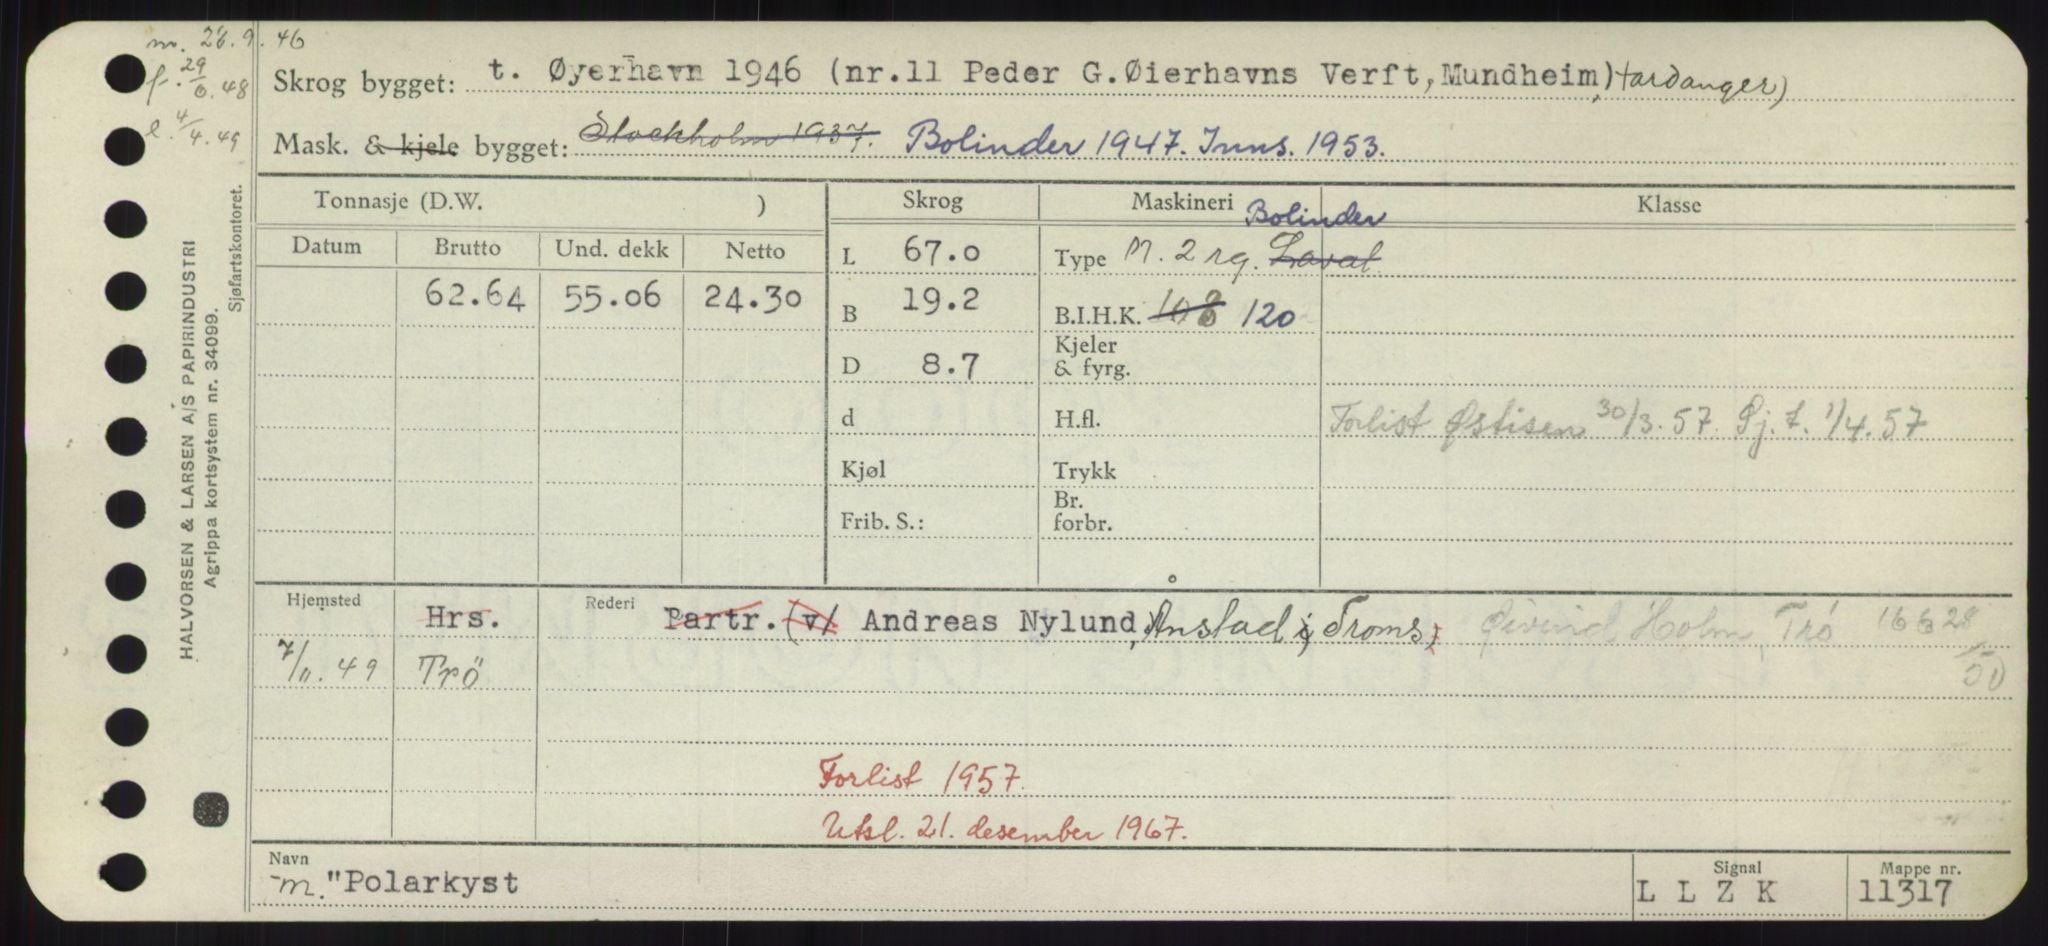 m. 26.9.46
f. 29/6.48
l. 4/4.49
Skrog bygget: t. Øyerhavn 1946 (nr.11 Peder G.Øierhavns Verft, Mundheim, Hardanger)
Mask. & kjele bygget: Stockholm 1937. Bolinder 1947. Inns. 1953.
Tonnasje (D.W. ) Skrog Maskineri Klasse
Datum Brutto Und. dekk Netto
62.64 55.06 24.30
L 67.0
B 19.2
D 8.7
d
Kjøl
Frib. S.:
Bolinder
Type M. 2 rg. Laval
B.I.H.K. 120
Kjeler
& fyrg.
H.fl.
Trykk
Br.
forbr.
Forlist Østisen 30/3.57. Sj.f. 1/4.57
Hjemsted Hrs. Rederi Partr. (v/ Andreas Nylund, Ånstad i Troms) Øivind Holm Trö 16628/50
7/11.49 Trö
Forlist 1957.
Utsl. 21. desember 1967.
Navn m. "Polarkyst
Signal L L Z K
Mappe nr. 11317
HALVORSEN & LARSEN A/S PAPIRINDUSTRI
Agrippa kortsystem nr. 34099.
Sjøfartskontoret.